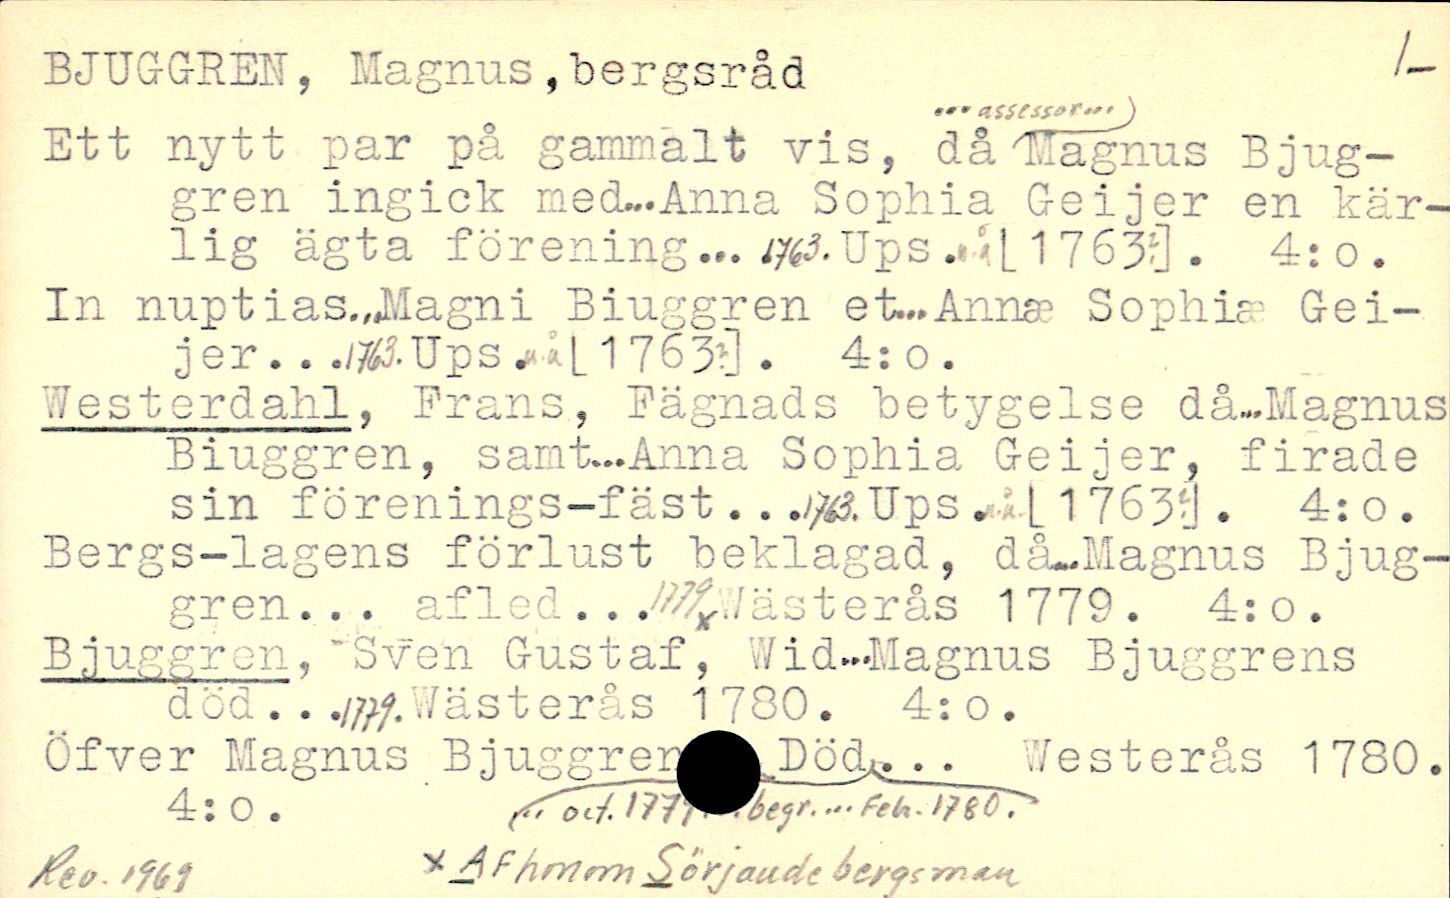 BJUGGREN, Magnus, bergsråd 1-
... assessor...
Ett nytt par på gammalt vis, då Magnus Bjug-
gren ingick med...Anna Sophia Geijer en kär-
lig ägta förening... 1763. Ups. u.å [1763?]. 4:o.
In nuptias...Magni Biuggren et...Annæ Sophiæ Gei-
jer... 1763. Ups. u.å [1763?]. 4:o.
Westerdahl, Frans, Fägnads betygelse då...Magnus
Biuggren, samt...Anna Sophia Geijer, firade
sin förenings-fäst... 1763. Ups. u.å. [1763?]. 4:o.
Bergs-lagens förlust beklagad, då...Magnus Bjug-
gren... afled... 1779 x Wästerås 1779. 4:o.
Bjuggren, Sven Gustaf, Wid...Magnus Bjuggrens
död... 1779. Wästerås 1780. 4:o.
Öfver Magnus Bjuggren Död... Westerås 1780.
4:o. ... oct. 1779 begr. ... Febr. 1780.
Rev. 1969 x Af honom Sörjande bergsman